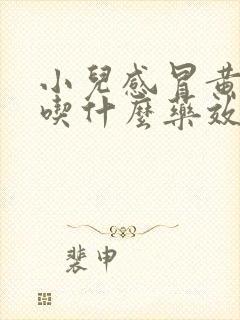 小兒感冒黄
喫什麼藥效
裴申